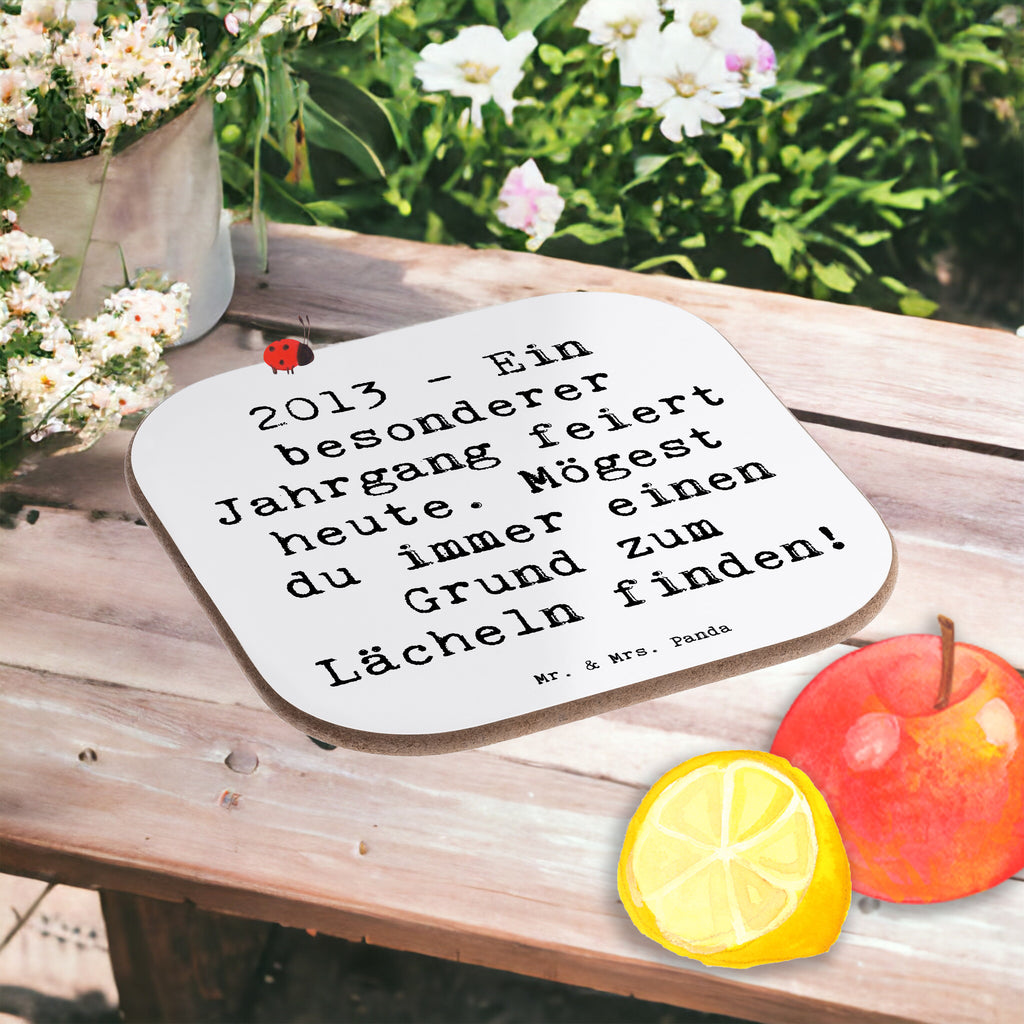 2013 - Ein
besonderer
Jahrgang feiert
heute. Mögest
du immer einen
Grund zum
Lächeln finden!
Mr. & Mrs. Panda